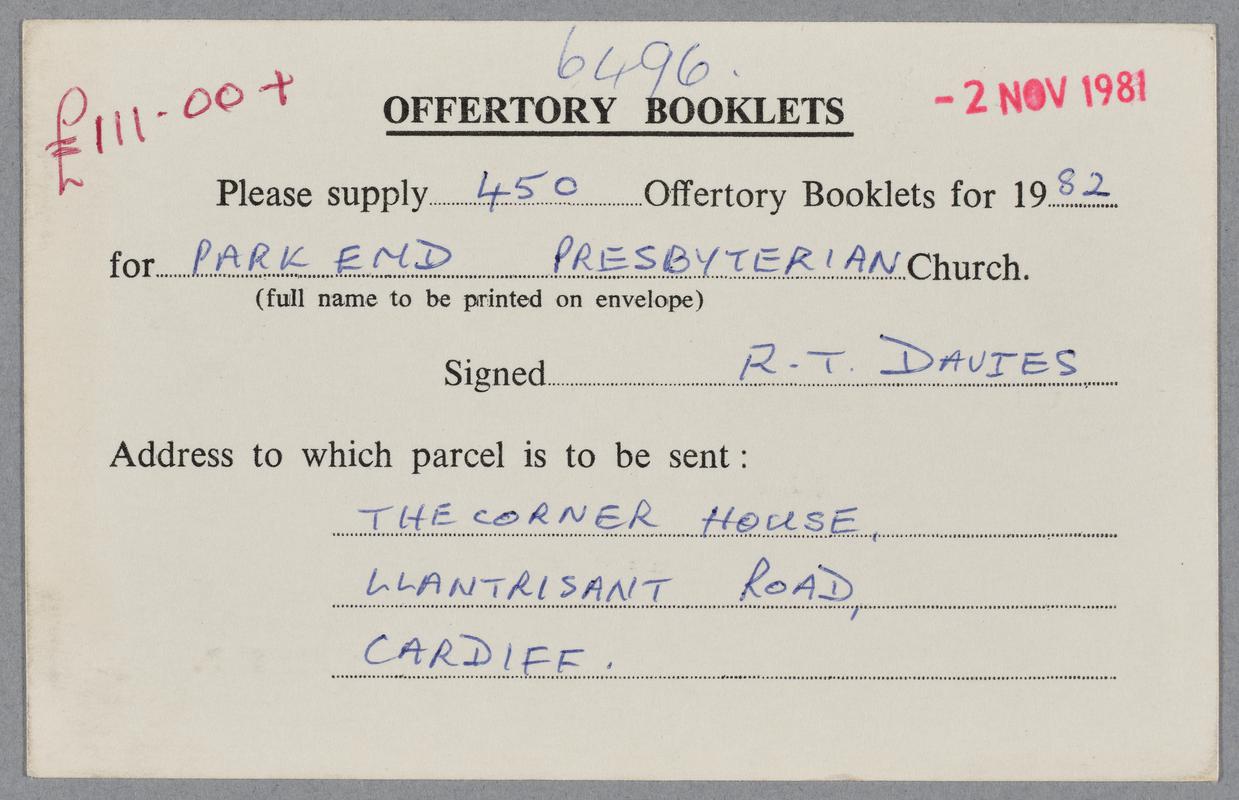 6496.
£111-00+
- 2 NOV 1981
OFFERTORY BOOKLETS
Please supply 450 Offertory Booklets for 1982
for PARK END PRESBYTERIAN Church.
(full name to be printed on envelope)
Signed R.T. DAVIES
Address to which parcel is to be sent :
THE CORNER HOUSE,
LLANTRISANT ROAD,
CARDIFF.